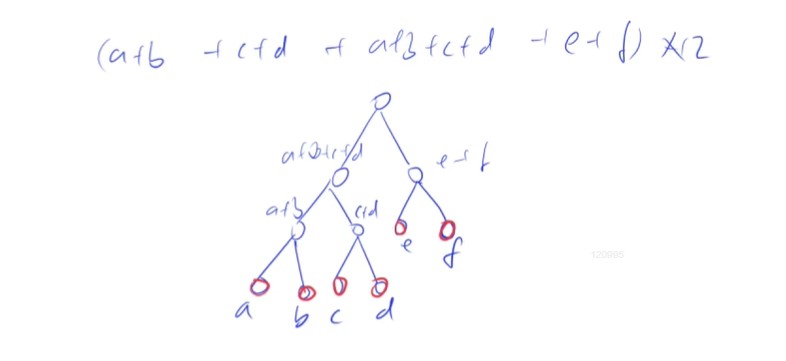 (a+b + c+d + a+b+c+d + e+f) x 2
a+b+c+d
e+f
a+b
c+d
e
f
a
b
c
d
120995